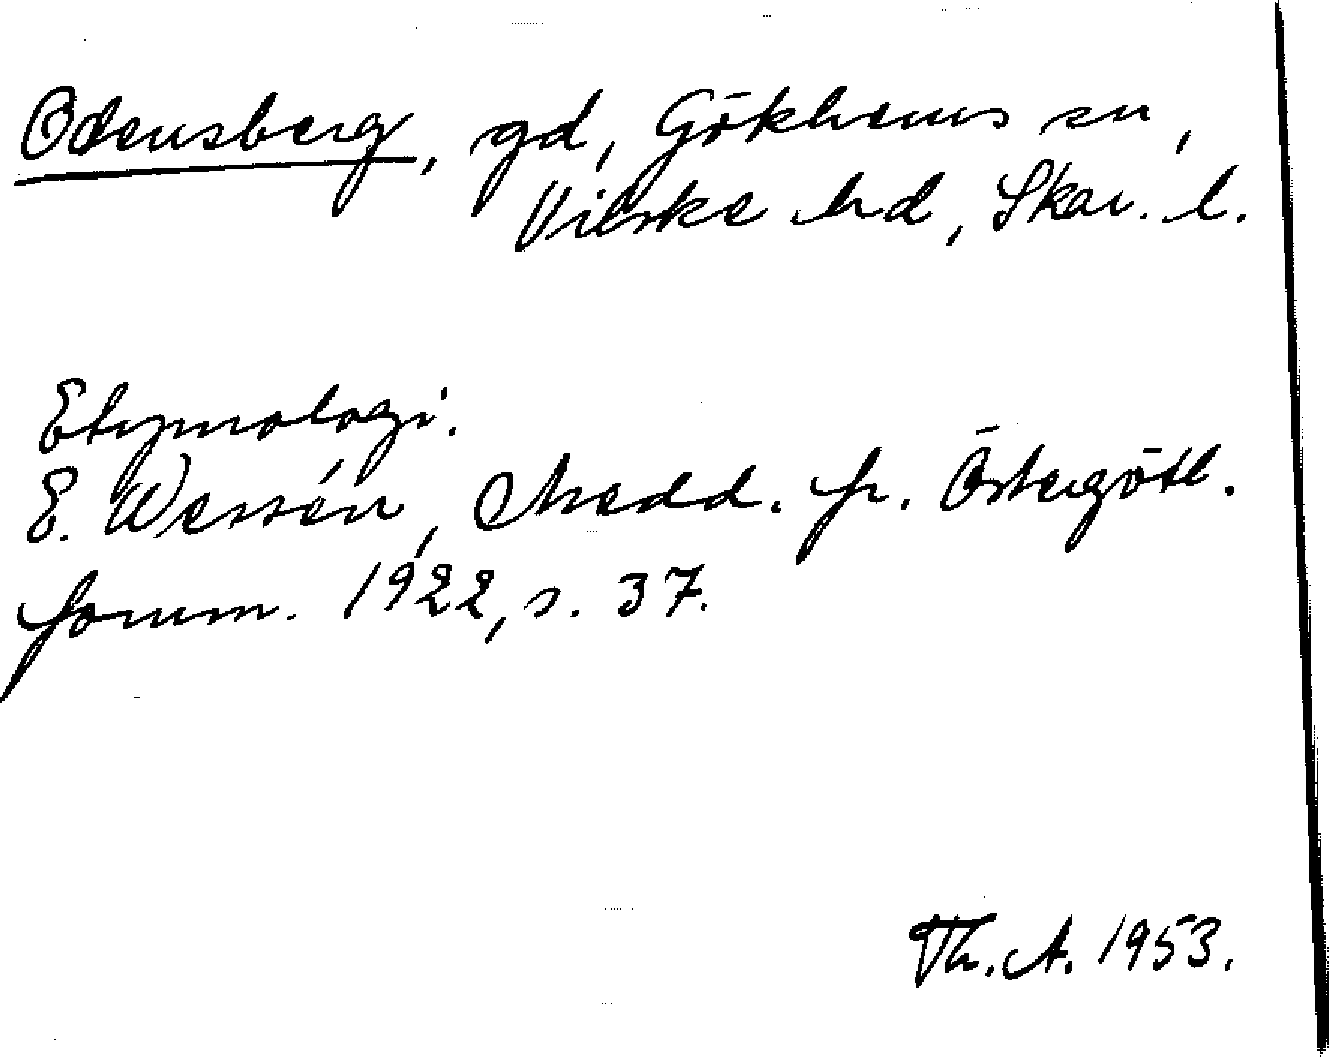 Odensberg, gd, Gökhems sn,
Vilske hd, Skar. l.
Etymologi.
E. Wessén, Medd. fr. Östergötl.
fornm. 1922, s. 37.
Th. A. 1953.